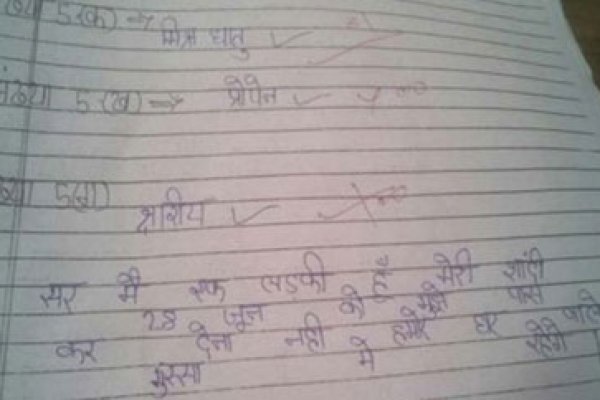 5(क) → मिश्र धातु
5(ख) → प्रोपेन
5(ग)
क्षारीय
सर मै एक लडकी हूँ मेरी शादी
28 जून को है मुझे पास
कर देना नही तो हमारे घर वाले
गुस्सा मे रहेंगे